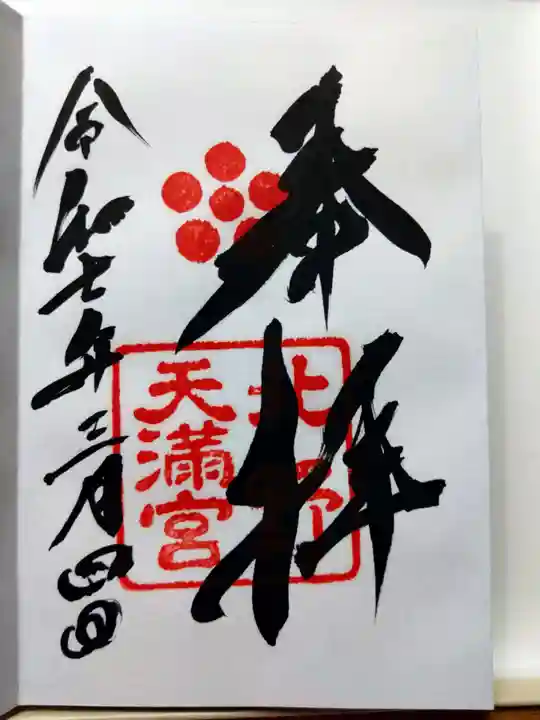 奉拝
北野
天満宮
令和七年三月四日